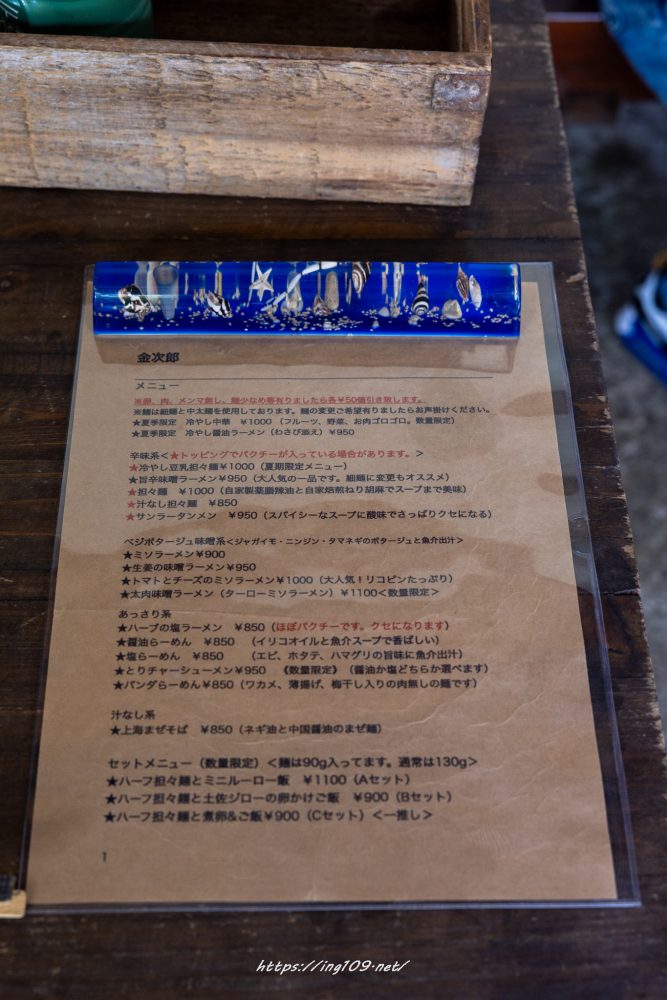 金次郎
メニュー
※卵、肉、メンマ無し、麺少なめ等有りましたら各¥50値引き致します。
※麺は細麺と中太麺を使用しております。麺の変更ご希望有りましたらお声掛けください。
★夏季限定 冷やし中華 ¥1000 (フルーツ、野菜、お肉ゴロゴロ。数量限定)
★夏季限定 冷やし醤油ラーメン(わさび添え)¥950
辛味系<★トッピングでパクチーが入っている場合があります。>
★冷やし豆乳担々麺¥1000(夏期限定メニュー)
★旨辛味噌ラーメン¥950(大人気の一品です。細麺に変更もオススメ)
★担々麺 ¥1000(自家製薬膳辣油と自家焙煎ねり胡麻でスープまで美味)
★汁なし担々麺 ¥850
★サンラータンメン ¥950(スパイシーなスープに酸味でさっぱりクセになる)
ベジポタージュ味噌系<ジャガイモ・ニンジン・タマネギのポタージュと魚介出汁>
★ミソラーメン¥900
★生姜の味噌ラーメン¥950
★トマトとチーズのミソラーメン¥1000(大人気！リコピンたっぷり)
★太肉味噌ラーメン(ターローミソラーメン)¥1100<数量限定>
あっさり系
★ハーブの塩ラーメン ¥850(ほぼパクチーです。クセになります)
★醤油らーめん ¥850 (イリコオイルと魚介スープで香ばしい)
★塩らーめん ¥850 (エビ、ホタテ、ハマグリの旨味に魚介出汁)
★とりチャーシューメン¥950 《数量限定》(醤油か塩どちらか選べます)
★パンダらーめん¥850(ワカメ、薄揚げ、梅干し入りの肉無しの麺です)
汁なし系
★上海まぜそば ¥850(ネギ油と中国醤油のまぜ麺)
セットメニュー(数量限定)<麺は90g入ってます。通常は130g>
★ハーフ担々麺とミニルーロー飯 ¥1100(Aセット)
★ハーフ担々麺と土佐ジローの卵かけご飯 ¥900(Bセット)
★ハーフ担々麺と煮卵&ご飯¥900(Cセット)<一推し>
1
https://ing109.net/